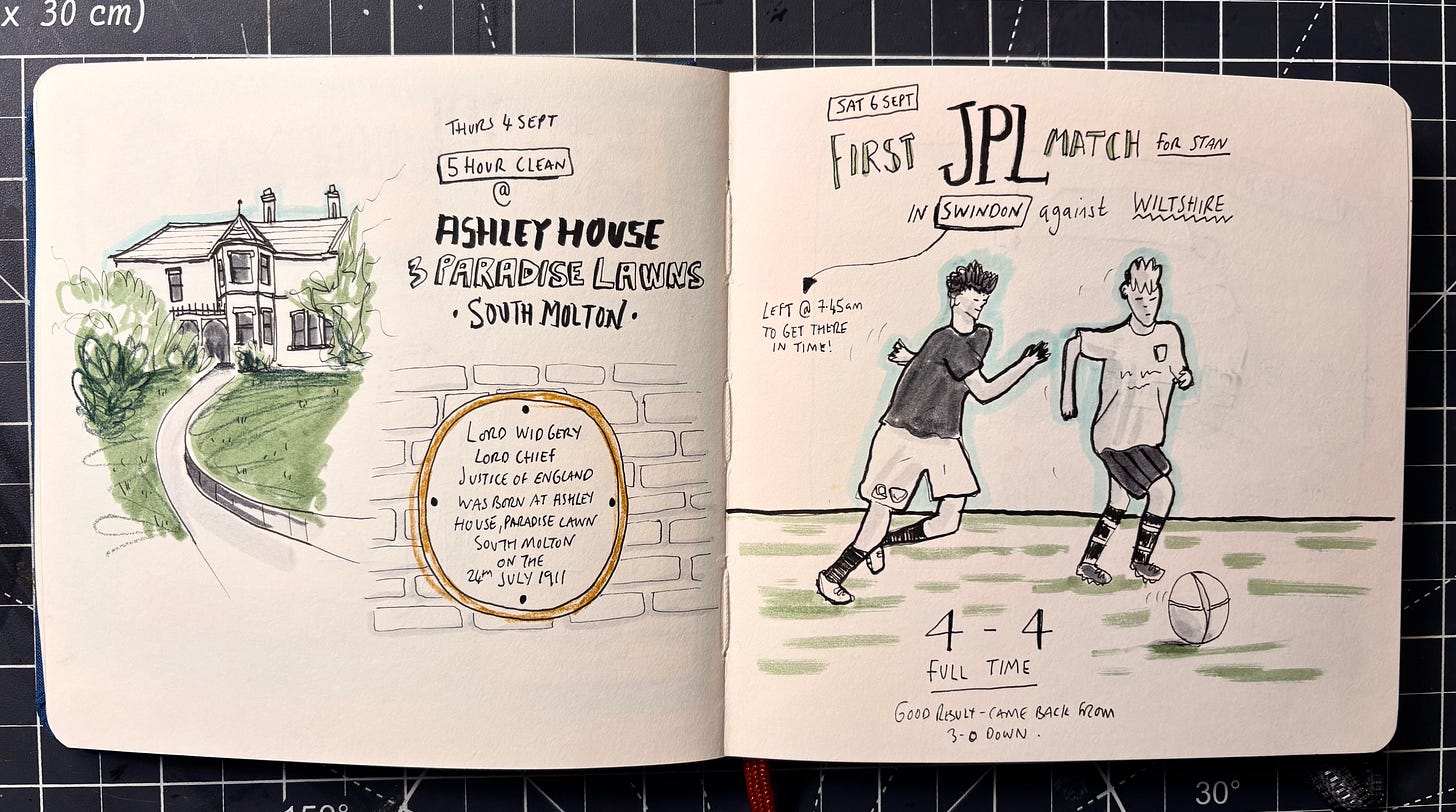 x 30 cm)
THURS 4 SEPT
5 HOUR CLEAN
@
ASHLEY HOUSE
3 PARADISE LAWNS
· SOUTH MOLTON ·
LORD WIDGERY
LORD CHIEF
JUSTICE OF ENGLAND
WAS BORN AT ASHLEY
HOUSE, PARADISE LAWN
SOUTH MOLTON
ON THE
24TH JULY 1911
SAT 6 SEPT
FIRST JPL MATCH FOR STAN
IN SWINDON against WILTSHIRE
LEFT @ 7.45am
TO GET THERE
IN TIME!
4 - 4
FULL TIME
GOOD RESULT - CAME BACK FROM
3-0 DOWN.
150°
30°